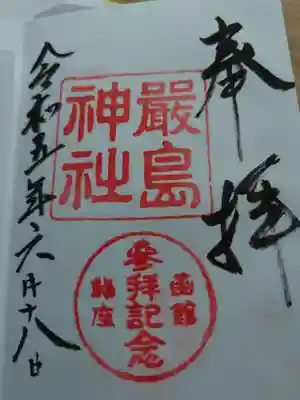 奉拝
嚴島
神社
函館
參拜記念
鎮座
令和五年六月十八日